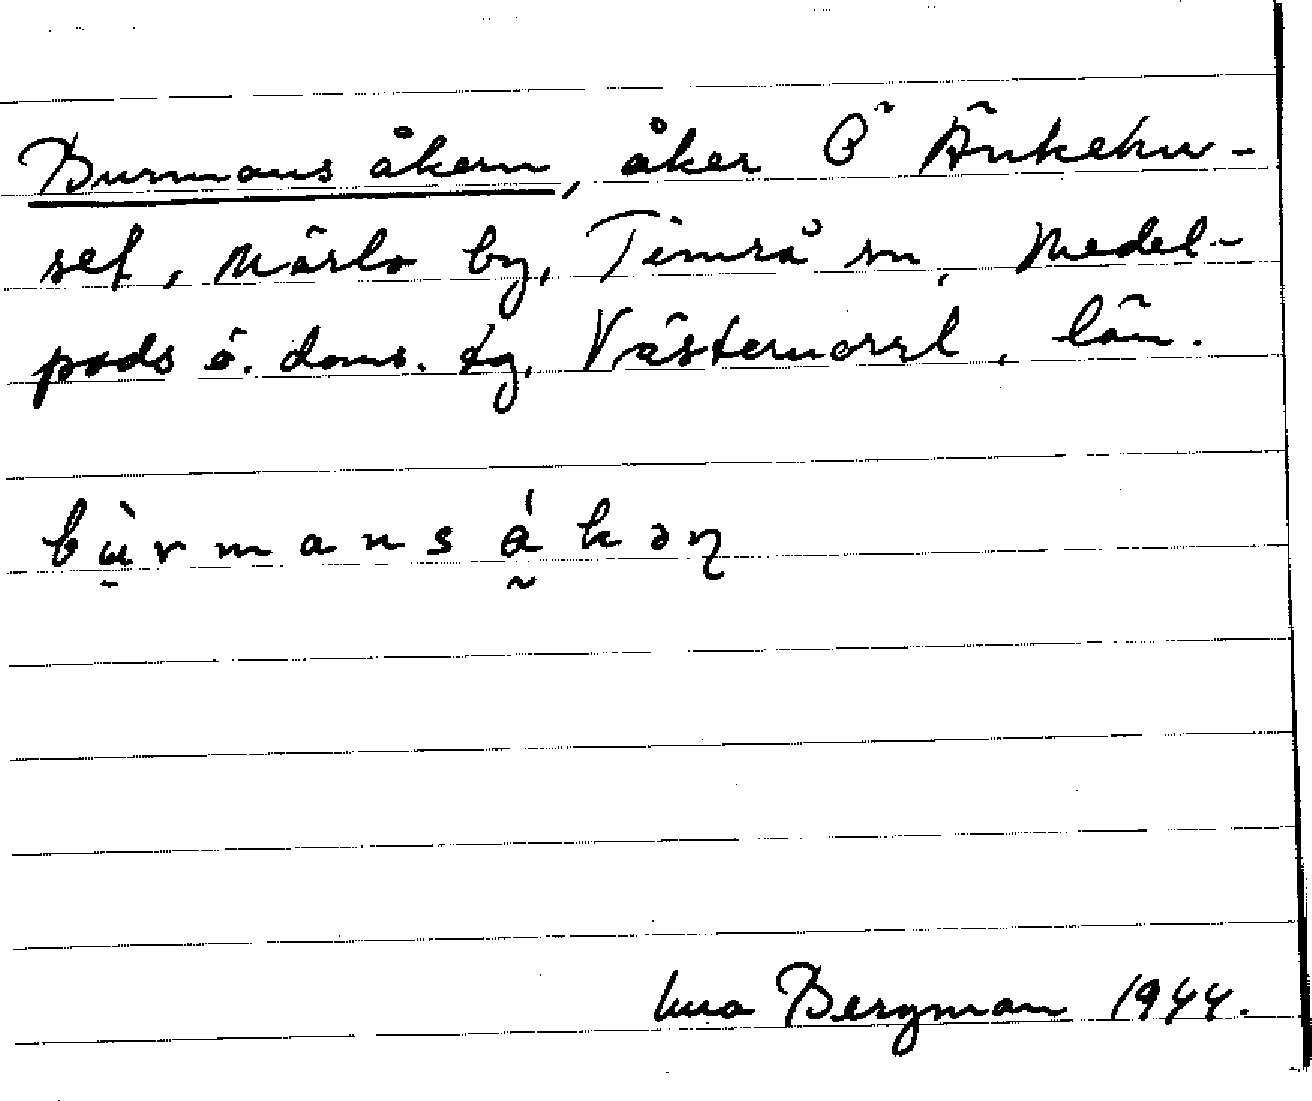 Burmans åkern, åker Ö Änkehu-
set, Märlo by, Timrå sn, Medel-
pads ö. doms. tg, Västernorrl. län.
bù̱rmans á̰kəɳ
Bergman 1944.